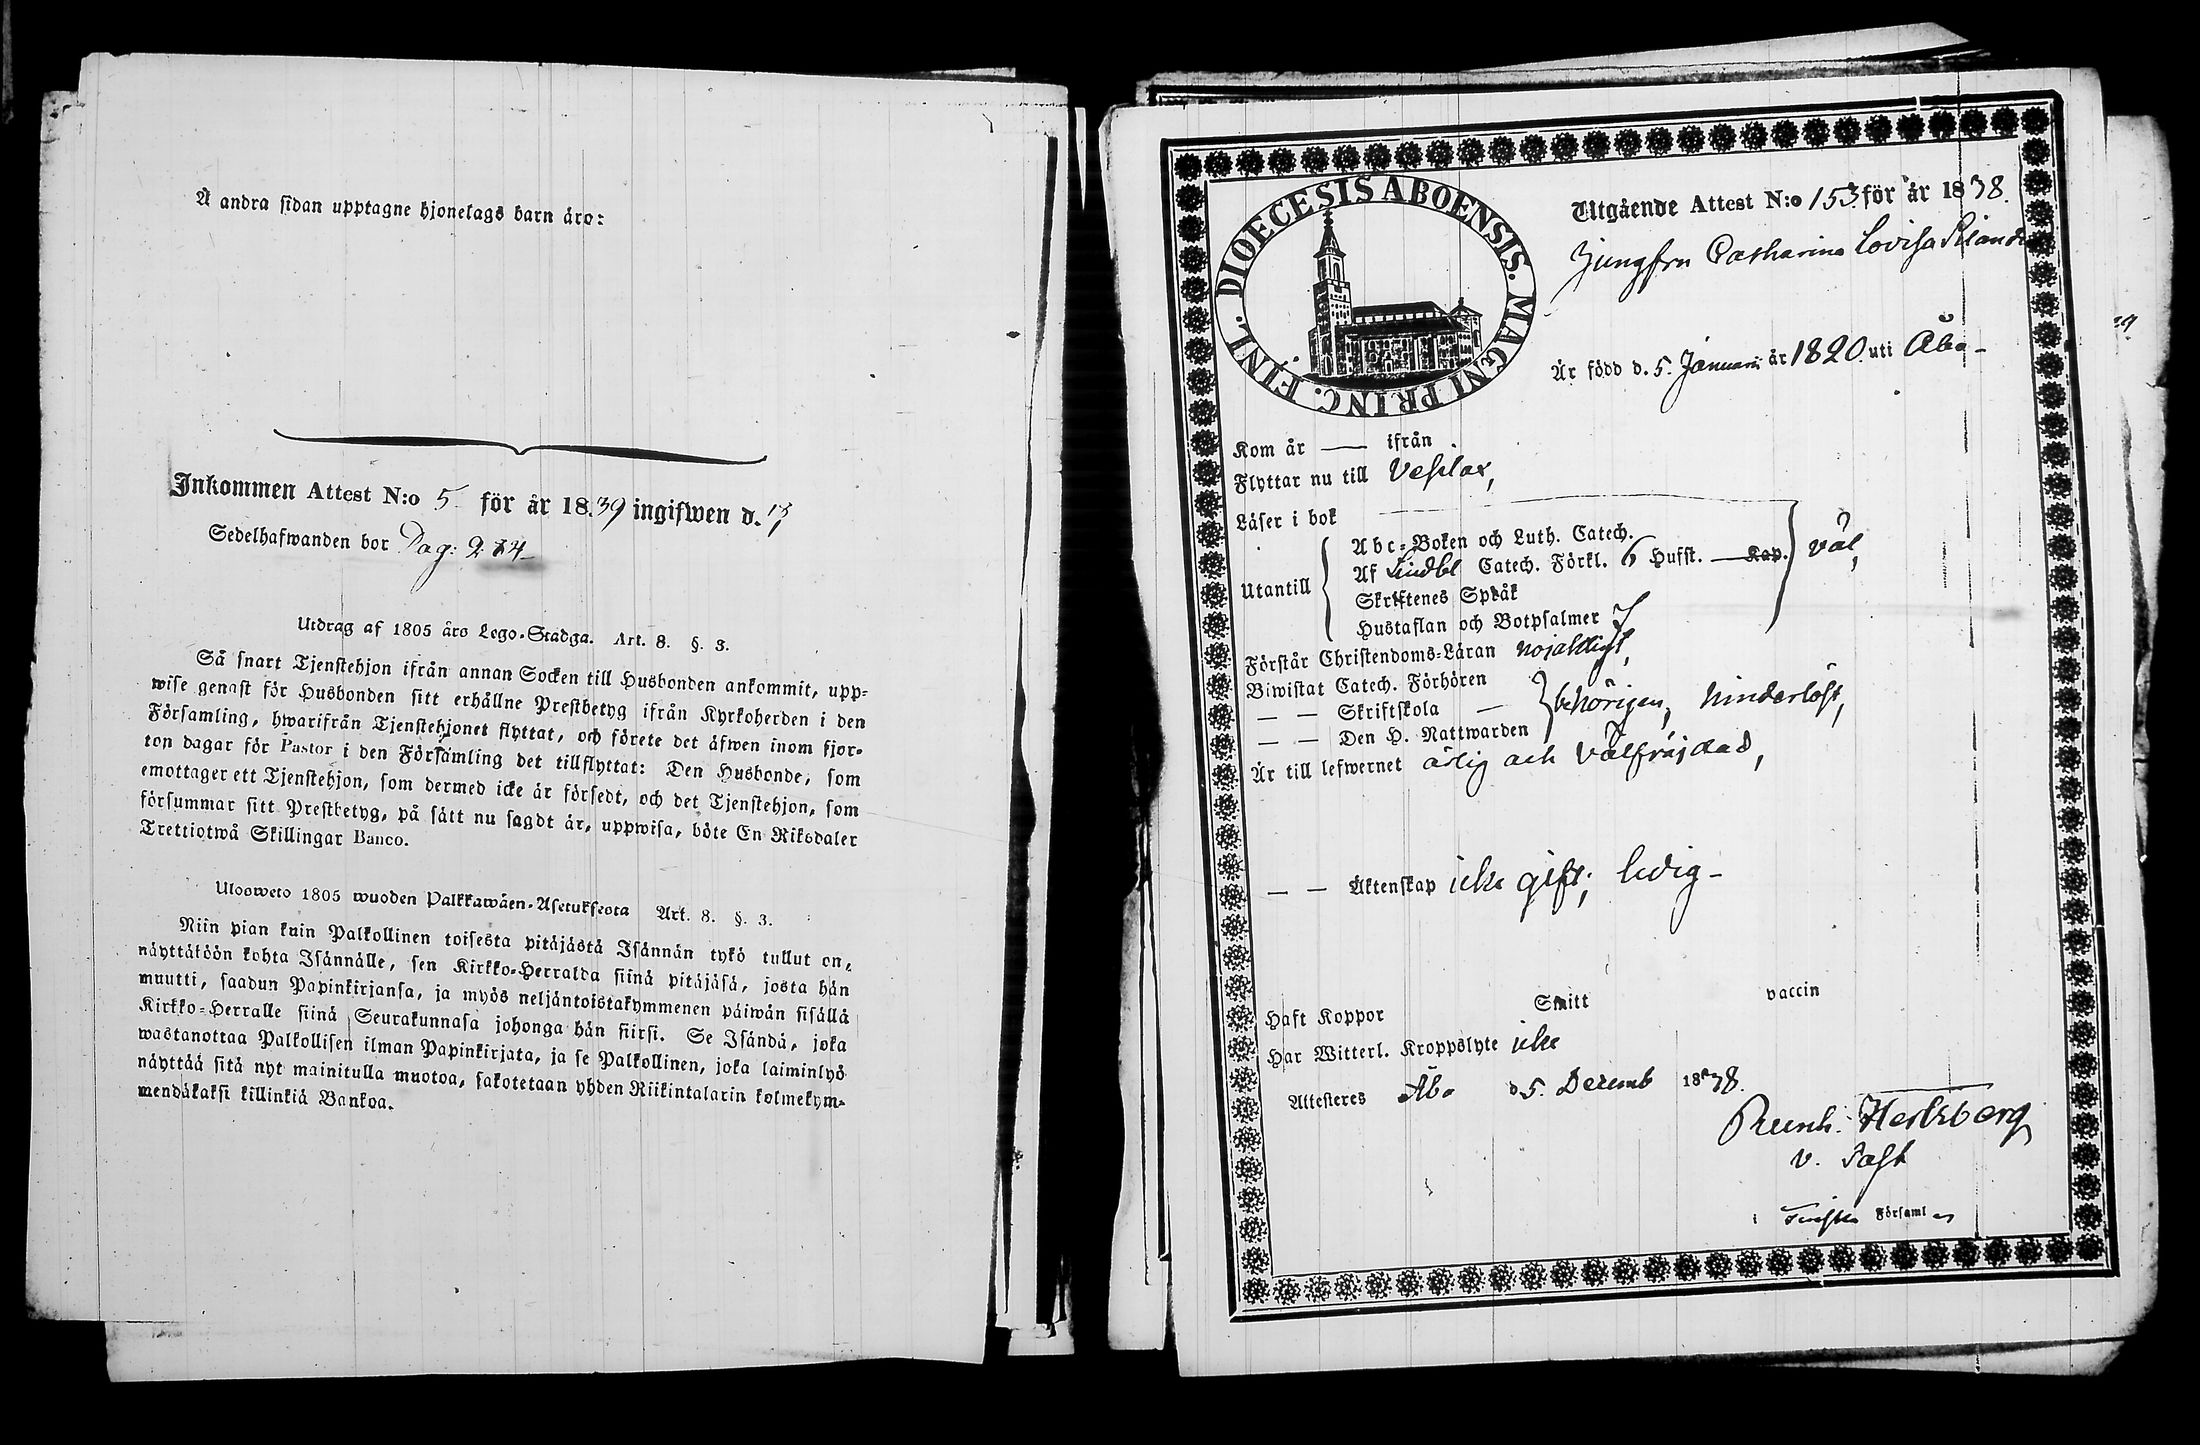 Å andra sidan upptagne hjonelags barn äro:
Inkommen Attest N:o 5 för år 1839 ingifwen d. 13
Sedelhafwanden bor Dag: 2
Utdrag af 1805 års Lego-Stadga. Art. 8. §. 3.
Så snart Tjenstehjon ifrån annan Socken till Husbonden ankommit, upp-
wise genast för Husbonden sitt erhållne Prestbetyg ifrån Kyrkoherden i den
Församling, hwarifrån Tjenstehjonet flyttat, och förete det äfwen inom fjor-
ton dagar för Pastor i den Församling det tillflyttat: Den Husbonde, som
emottager ett Tjenstehjon, som dermed icke är försedt, och det Tjenstehjon, som
försummar sitt Prestbetyg, på sätt nu sagdt är, uppwisa, böte En Riksdaler
Trettiotwå Skillingar Banco.
Ulosweto 1805 wuoden Palkkawäen-Asetuksesta Art. 8. §. 3.
Niin pian kuin Palkollinen toisesta pitäjästä Isännän tykö tullut on,
näyttäköön kohta Isännälle, sen Kirkko-Herralda siinä pitäjäsä, josta hän
muutti, saadun Papinkirjansa, ja myös neljäntoistakymmenen päiwän sisällä
Kirkko-Herralle siinä Seurakunnasa johonga hän siirsi. Se Isändä, joka
wastanottaa Palkollisen ilman Papinkirjata, ja se Palkollinen, joka laiminlyö
näyttää sitä nyt mainitulla muotoa, sakotetaan yhden Riikintalarin kolmekym-
mendäkaksi killinkiä Bankoa.
DIOECESIS ABOENSIS. MAGNI PRINC. FINL.
Utgående Attest N:o 153 för år 1838.
Jungfru Catharina Lovisa
Är född d. 5. Januari år 1820 uti Åbo
Kom år — ifrån
Flyttar nu till Vesilax,
Läser i bok
Utantill
Abc-Boken och Luth. Catech.
Af Lindbl Catech. Förkl. 6 Hufst. — Kap.
Skriftenes Språk
Hustaflan och Botpsalmer
väl,
Förstår Christendoms-Läran nöjaktigt,
Biwistat Catech. Förhören
— — Skriftskola —
— — Den H. Nattwarden
behörigen, hinderlöst,
Är till lefwernet ärlig och välfräjdad,
— — Äktenskap icke gift; ledig -
Haft Koppor Smitt vaccin
Har Witterl. Kroppslyte icke
Attesteres Åbo d. 5. Decemb 1838.
Reinh. Hertzberg
v. Past
i Finska Församl en